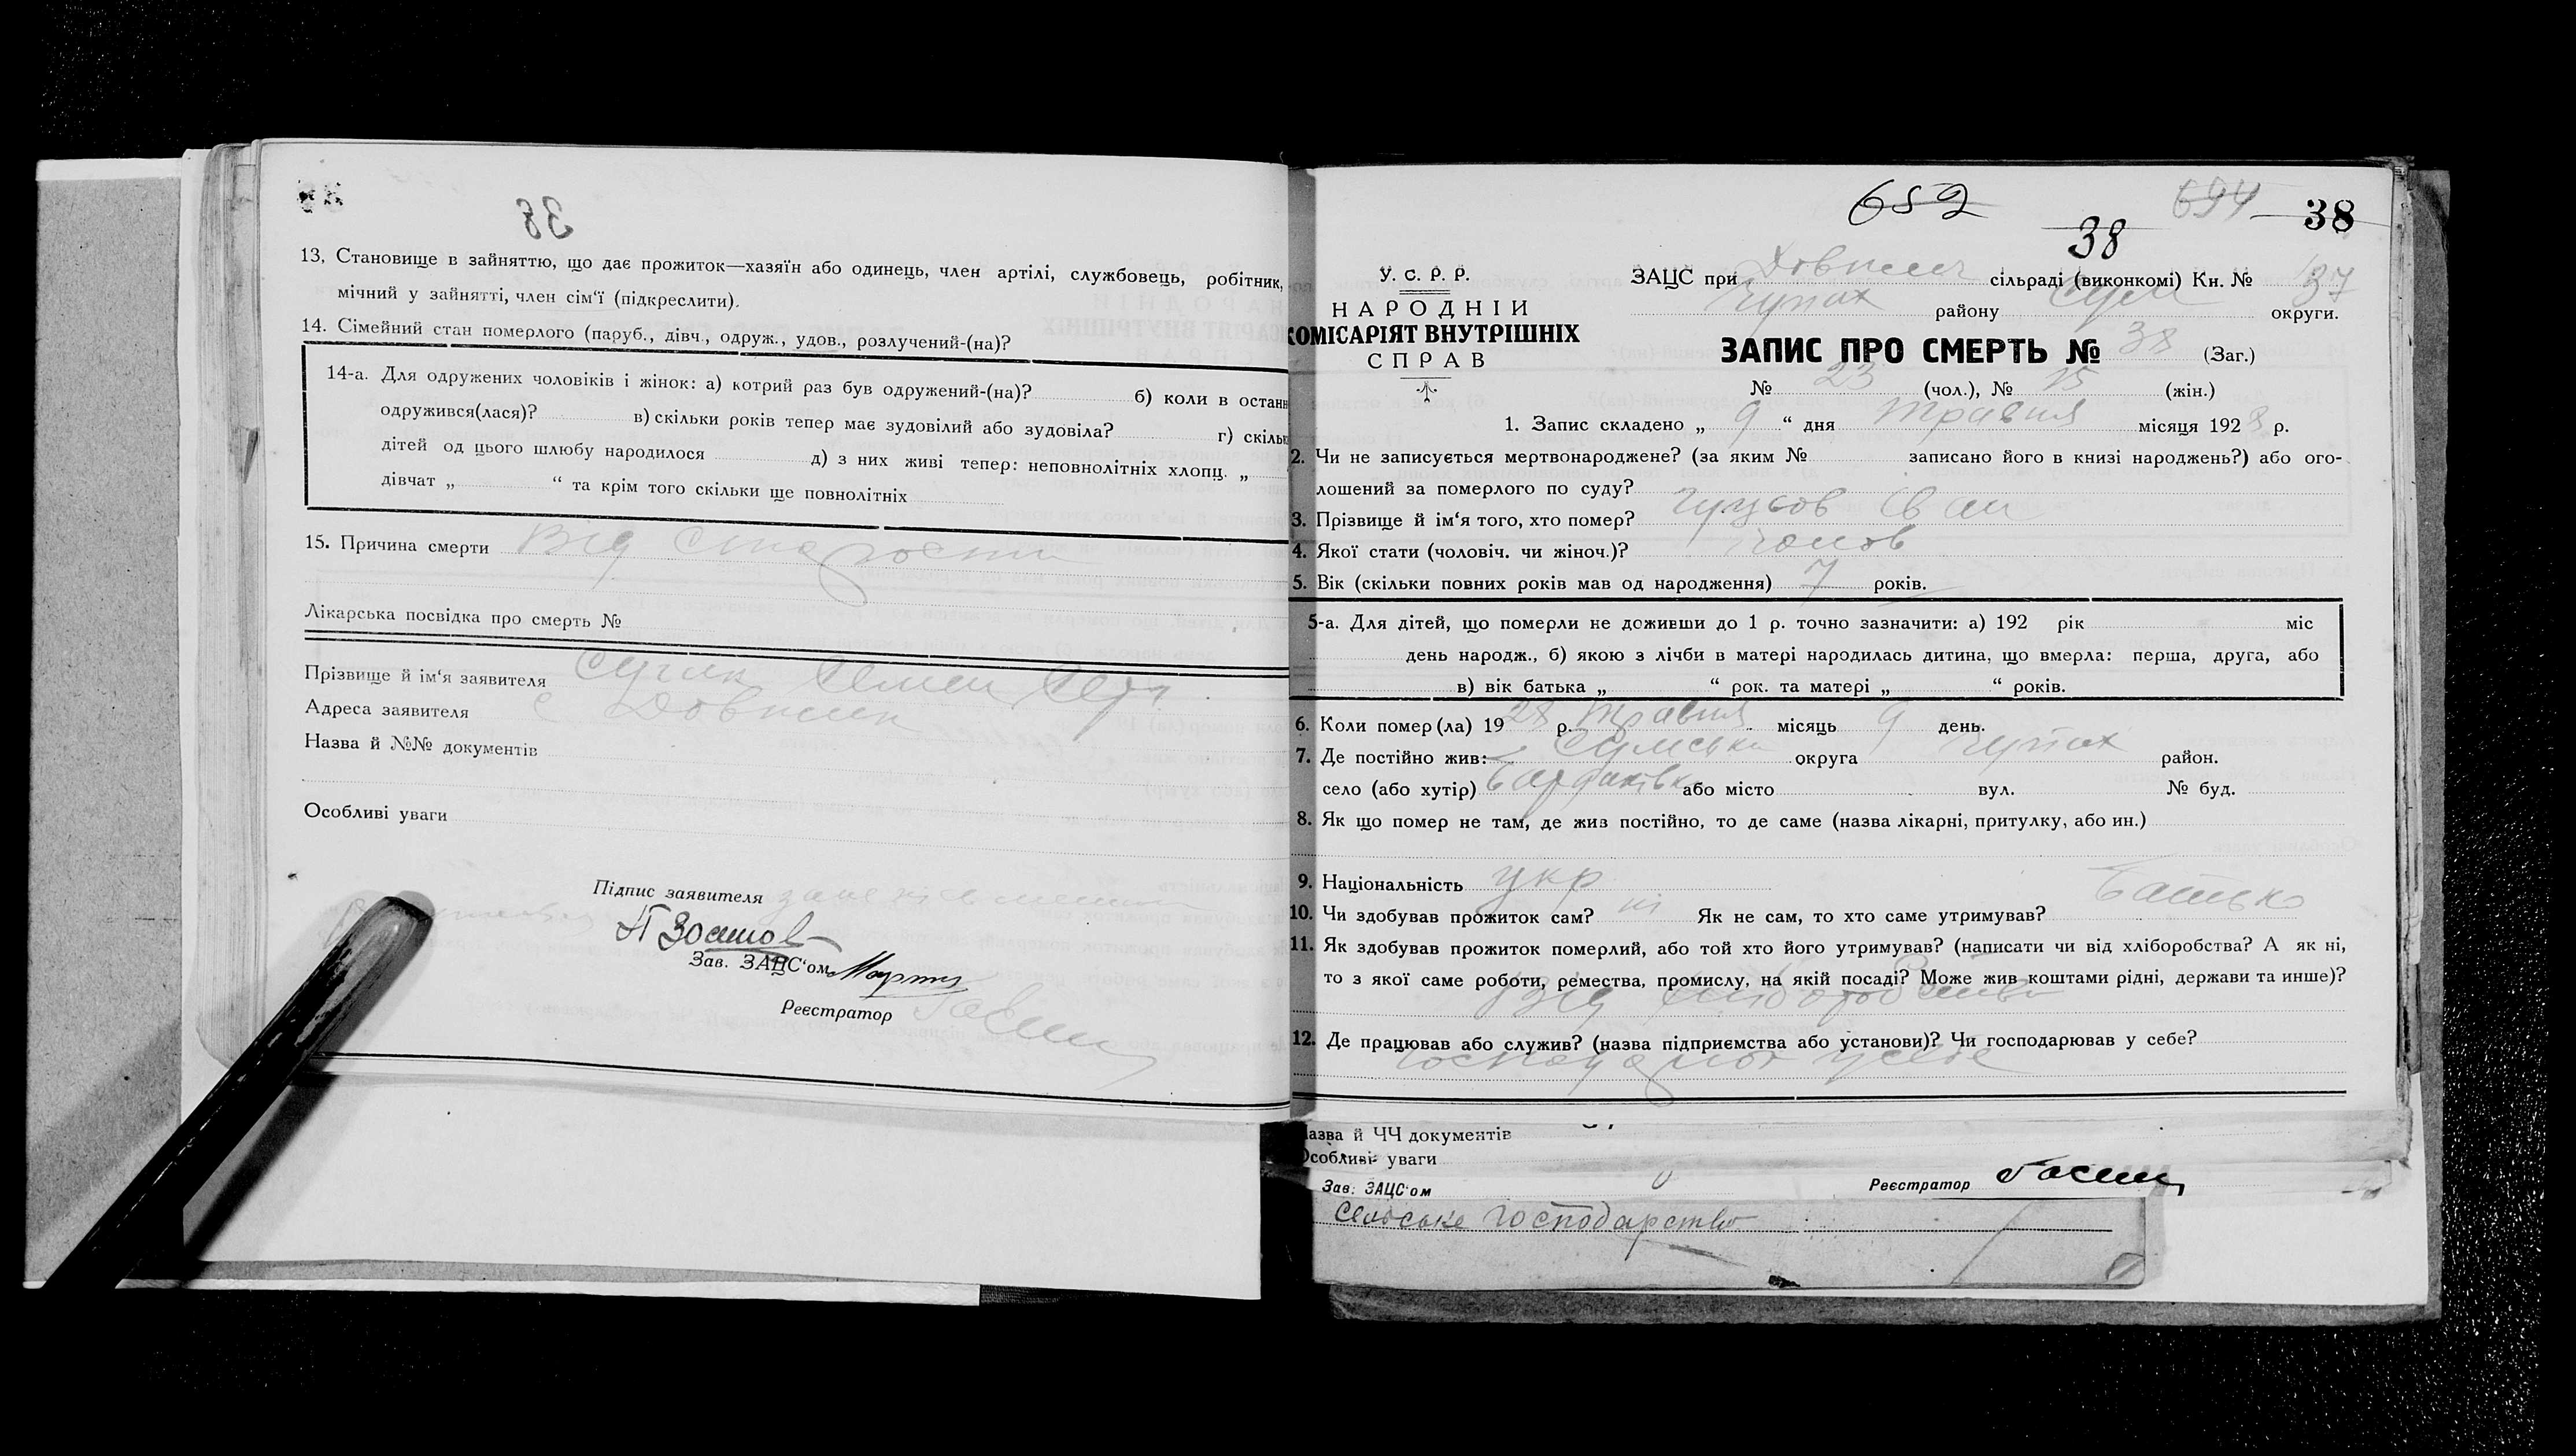 38
13, Становище в зайняттю, що дає прожиток—хазяїн або одинець, член артілі, службовець, робітник,
мічний у зайнятті, член сім'ї (підкреслити).
14. Сімейний стан померлого (паруб., дівч., одруж., удов., розлучений-(на)?
14-а. Для одружених чоловіків і жінок: а) котрий раз був одружений-(на)? б) коли в останн
одружився(лася)? в) скільки років тепер має зудовілий або зудовіла? г) скільк
дітей од цього шлюбу народилося д) з них живі тепер: неповнолітніх хлопц. „
дівчат „ “ та крім того скільки ще повнолітніх
15. Причина смерти Від старости
Лікарська посвідка про смерть №
Прізвище й ім'я заявителя Семен
Адреса заявителя с Довжик
Назва й №№ документів
Особливі уваги
Підпис заявителя
Зав. ЗАЦС'ом
Реєстратор
652 694 38
38
У. С. Р. Р.
НАРОДНІЙ
КОМІСАРІЯТ ВНУТРІШНІХ
СПРАВ
ЗАЦС при Довжик сільраді (виконкомі) Кн. № 37
району Сум округи.
ЗАПИС ПРО СМЕРТЬ № 38 (Заг.)
№ 23 (чол.), № 15 (жін.)
1. Запис складено „ 9 “ дня травня місяця 1928 р.
2. Чи не записується мертвонароджене? (за яким № записано його в книзі народжень?) або ого-
лошений за померлого по суду?
3. Прізвище й ім'я того, хто помер? Іван
4. Якої стати (чоловіч. чи жіноч.)? чолов
5. Вік (скільки повних років мав од народження) 7 років.
5-а. Для дітей, що померли не доживши до 1 р. точно зазначити: а) 192 рік міс
день народж., б) якою з лічби в матері народилась дитина, що вмерла: перша, друга, або
в) вік батька „ “ рок. та матері „ “ років.
6. Коли помер(ла) 1928 р. травня місяць 9 день.
7. Де постійно жив: Сумська округа район.
село (або хутір) Бардаківка або місто вул. № буд.
8. Як що помер не там, де жив постійно, то де саме (назва лікарні, притулку, або ин.)
9. Національність укр
10. Чи здобував прожиток сам? ні Як не сам, то хто саме утримував? батько
11. Як здобував прожиток померлий, або той хто його утримував? (написати чи від хліборобства? А як ні,
то з якої саме роботи, ремества, промислу, на якій посаді? Може жив коштами рідні, держави та инше)?
від хліборобства
12. Де працював або служив? (назва підприємства або установи)? Чи господарював у себе?
азва й ЧЧ документів
Особливі уваги
Зав. ЗАЦС'ом Реєстратор
сельське господарство